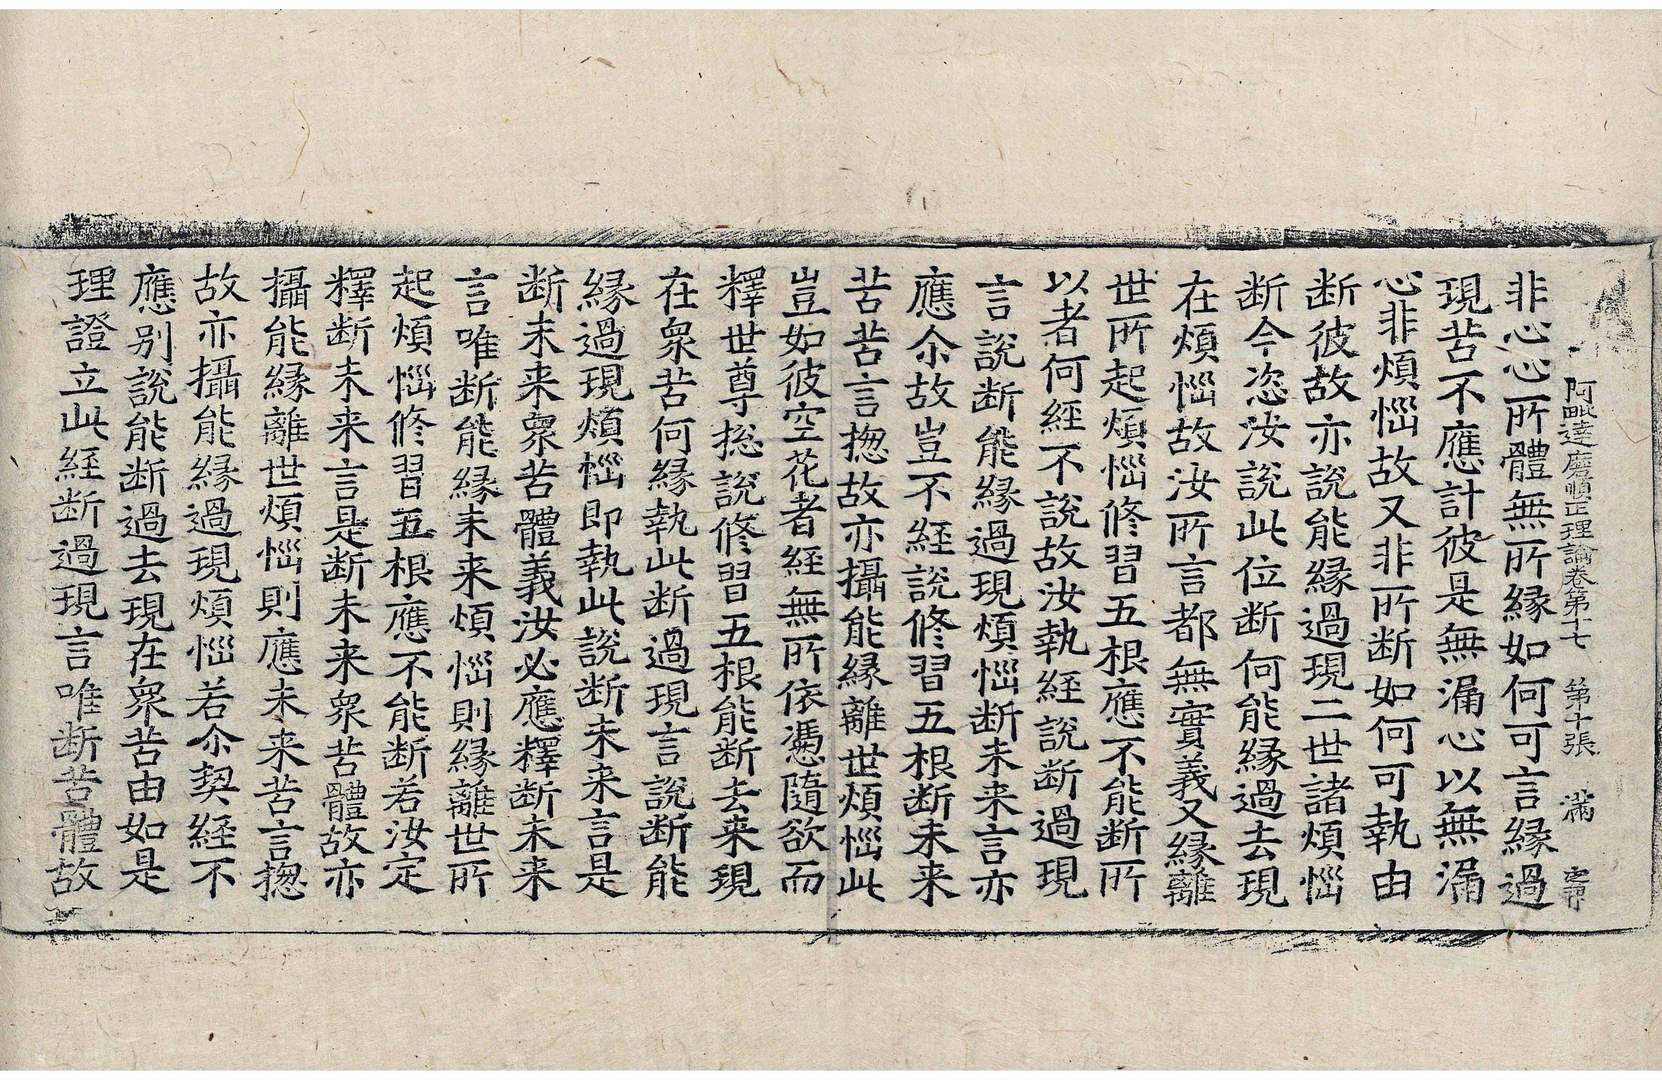 阿毗達磨順正理論卷第十七　第十張　滿
非心心所體無所緣如何可言緣過
現苦不應計彼是無漏心以無漏
心非煩惱故又非所斷如何可執由
断彼故亦說能緣過現二世諸煩惱
断今恣汝說此位断何能緣過去現
在煩惱故汝所言都無實義又緣離
世所起煩惱修習五根應不能断所
以者何經不說故汝執經說断過現
言說断能緣過現煩惱断未来言亦
應尒故豈不經說修習五根断未来
苦苦言揔故亦攝能緣離世煩惱此
豈如彼空花者經無所依憑隨欲而
釋世尊揔說修習五根能断去来現
在衆苦何緣執此断過現言說断能
緣過現煩惱即執此說断未来言是
断未来衆苦體義汝必應釋断未来
言唯断能緣未来煩惱則緣離世所
起煩惱修習五根應不能断若汝定
釋断未来言是断未来衆苦體故亦
攝能緣離世煩惱則應未来苦言揔
故亦攝能緣過現煩惱若尒契經不
應別說能断過去現在衆苦由如是
理證立此經断過現言唯断苦體故